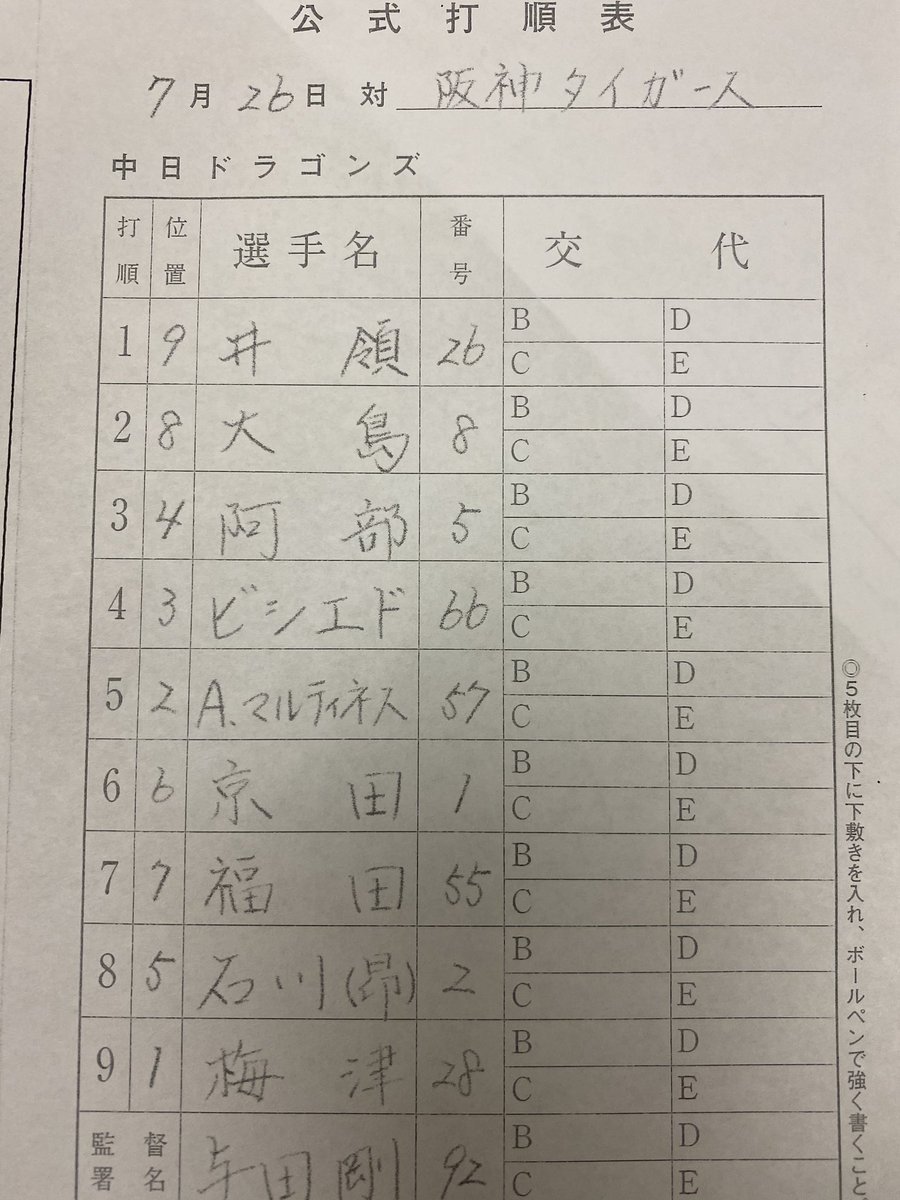 公式打順表
7月26日 対 阪神タイガース
中日ドラゴンズ
打順 位置 選手名 番号 交代
1 9 井領 26 B D
C E
2 8 大島 8 B D
C E
3 4 阿部 5 B D
C E
4 3 ビシエド 66 B D
C E
5 2 A.マルティネス 57 B D
C E
6 6 京田 1 B D
C E
7 7 福田 55 B D
C E
8 5 石川(昂) 2 B D
C E
9 1 梅津 28 B D
C E
監督署名 与田剛 92 B D
C E
◎5枚目の下に下敷きを入れ、ボールペンで強く書くこと